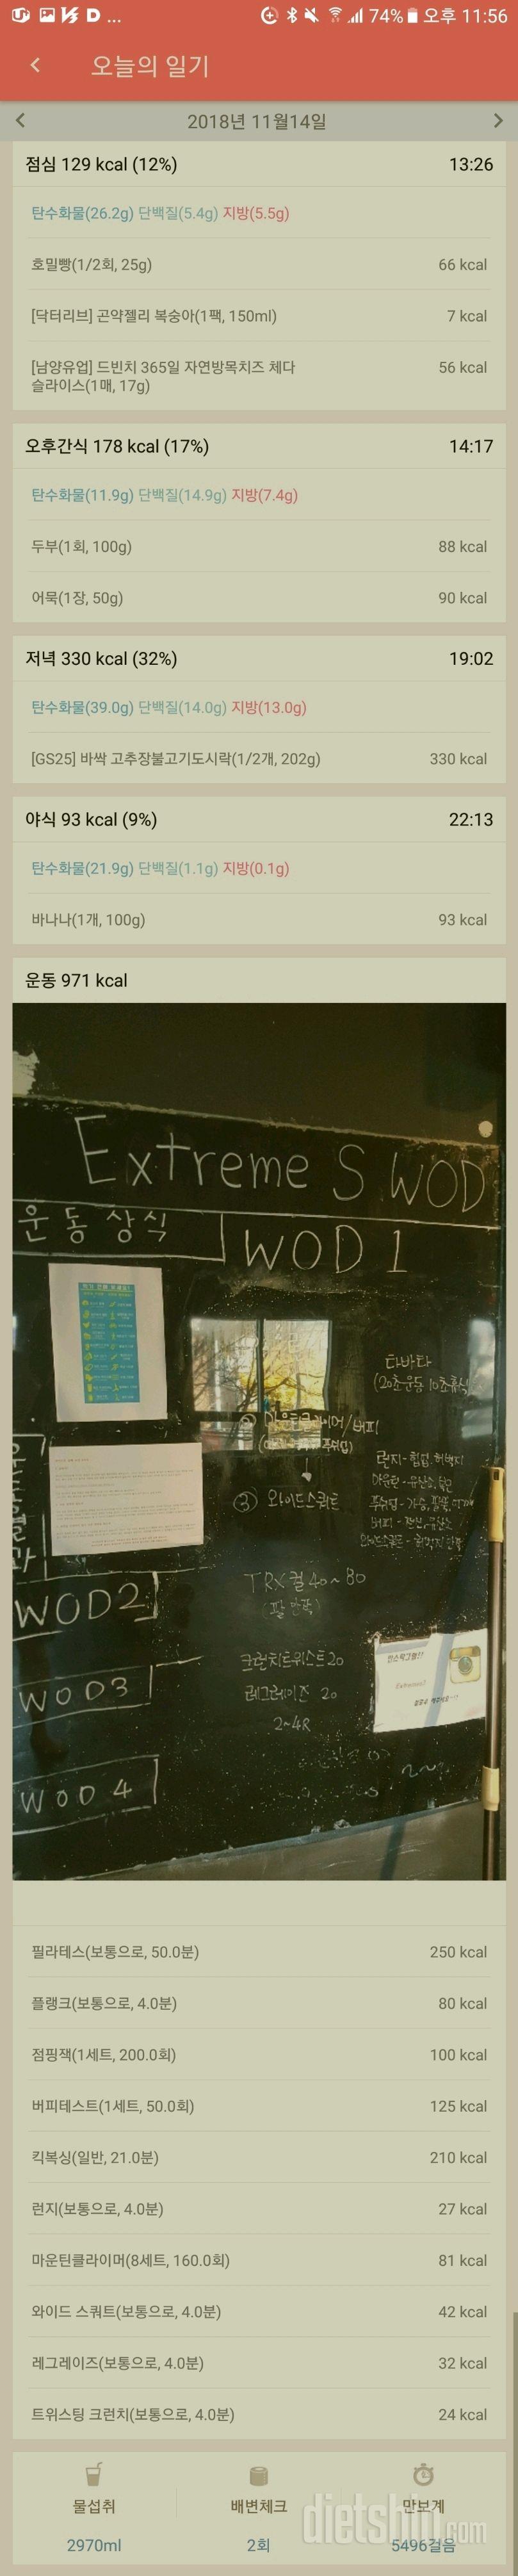 74% 오후 11:56
오늘의 일기
2018년 11월14일
점심 129 kcal (12%) 13:26
탄수화물(26.2g) 단백질(5.4g) 지방(5.5g)
호밀빵(1/2회, 25g) 66 kcal
[닥터리브] 곤약젤리 복숭아(1팩, 150ml) 7 kcal
[남양유업] 드빈치 365일 자연방목치즈 체다
슬라이스(1매, 17g) 56 kcal
오후간식 178 kcal (17%) 14:17
탄수화물(11.9g) 단백질(14.9g) 지방(7.4g)
두부(1회, 100g) 88 kcal
어묵(1장, 50g) 90 kcal
저녁 330 kcal (32%) 19:02
탄수화물(39.0g) 단백질(14.0g) 지방(13.0g)
[GS25] 바싹 고추장불고기도시락(1/2개, 202g) 330 kcal
야식 93 kcal (9%) 22:13
탄수화물(21.9g) 단백질(1.1g) 지방(0.1g)
바나나(1개, 100g) 93 kcal
운동 971 kcal
Extreme S WOD
운동 상식
WOD 1
타바타
(20초운동 10초휴식)
마운틴클라이머/버피
③ 와이드스쿼트
런지-힙업, 허벅지
WOD2
TRX 컬 40~80
WOD3
크런치트위스트 20
레그레이즈 20
2~4R
WOD 4
필라테스(보통으로, 50.0분) 250 kcal
플랭크(보통으로, 4.0분) 80 kcal
점핑잭(1세트, 200.0회) 100 kcal
버피테스트(1세트, 50.0회) 125 kcal
킥복싱(일반, 21.0분) 210 kcal
런지(보통으로, 4.0분) 27 kcal
마운틴클라이머(8세트, 160.0회) 81 kcal
와이드 스쿼트(보통으로, 4.0분) 42 kcal
레그레이즈(보통으로, 4.0분) 32 kcal
트위스팅 크런치(보통으로, 4.0분) 24 kcal
물섭취 배변체크 만보계
2970ml 2회 5496걸음
dietshin.com